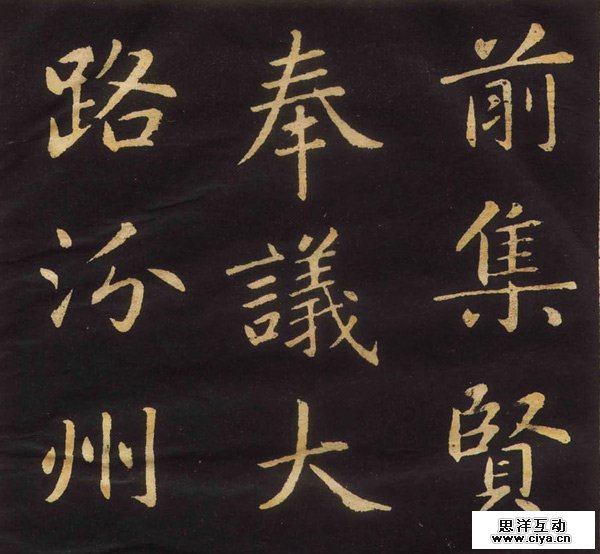 前集賢
奉議大
路汾州
思洋互动
www.ciya.cn